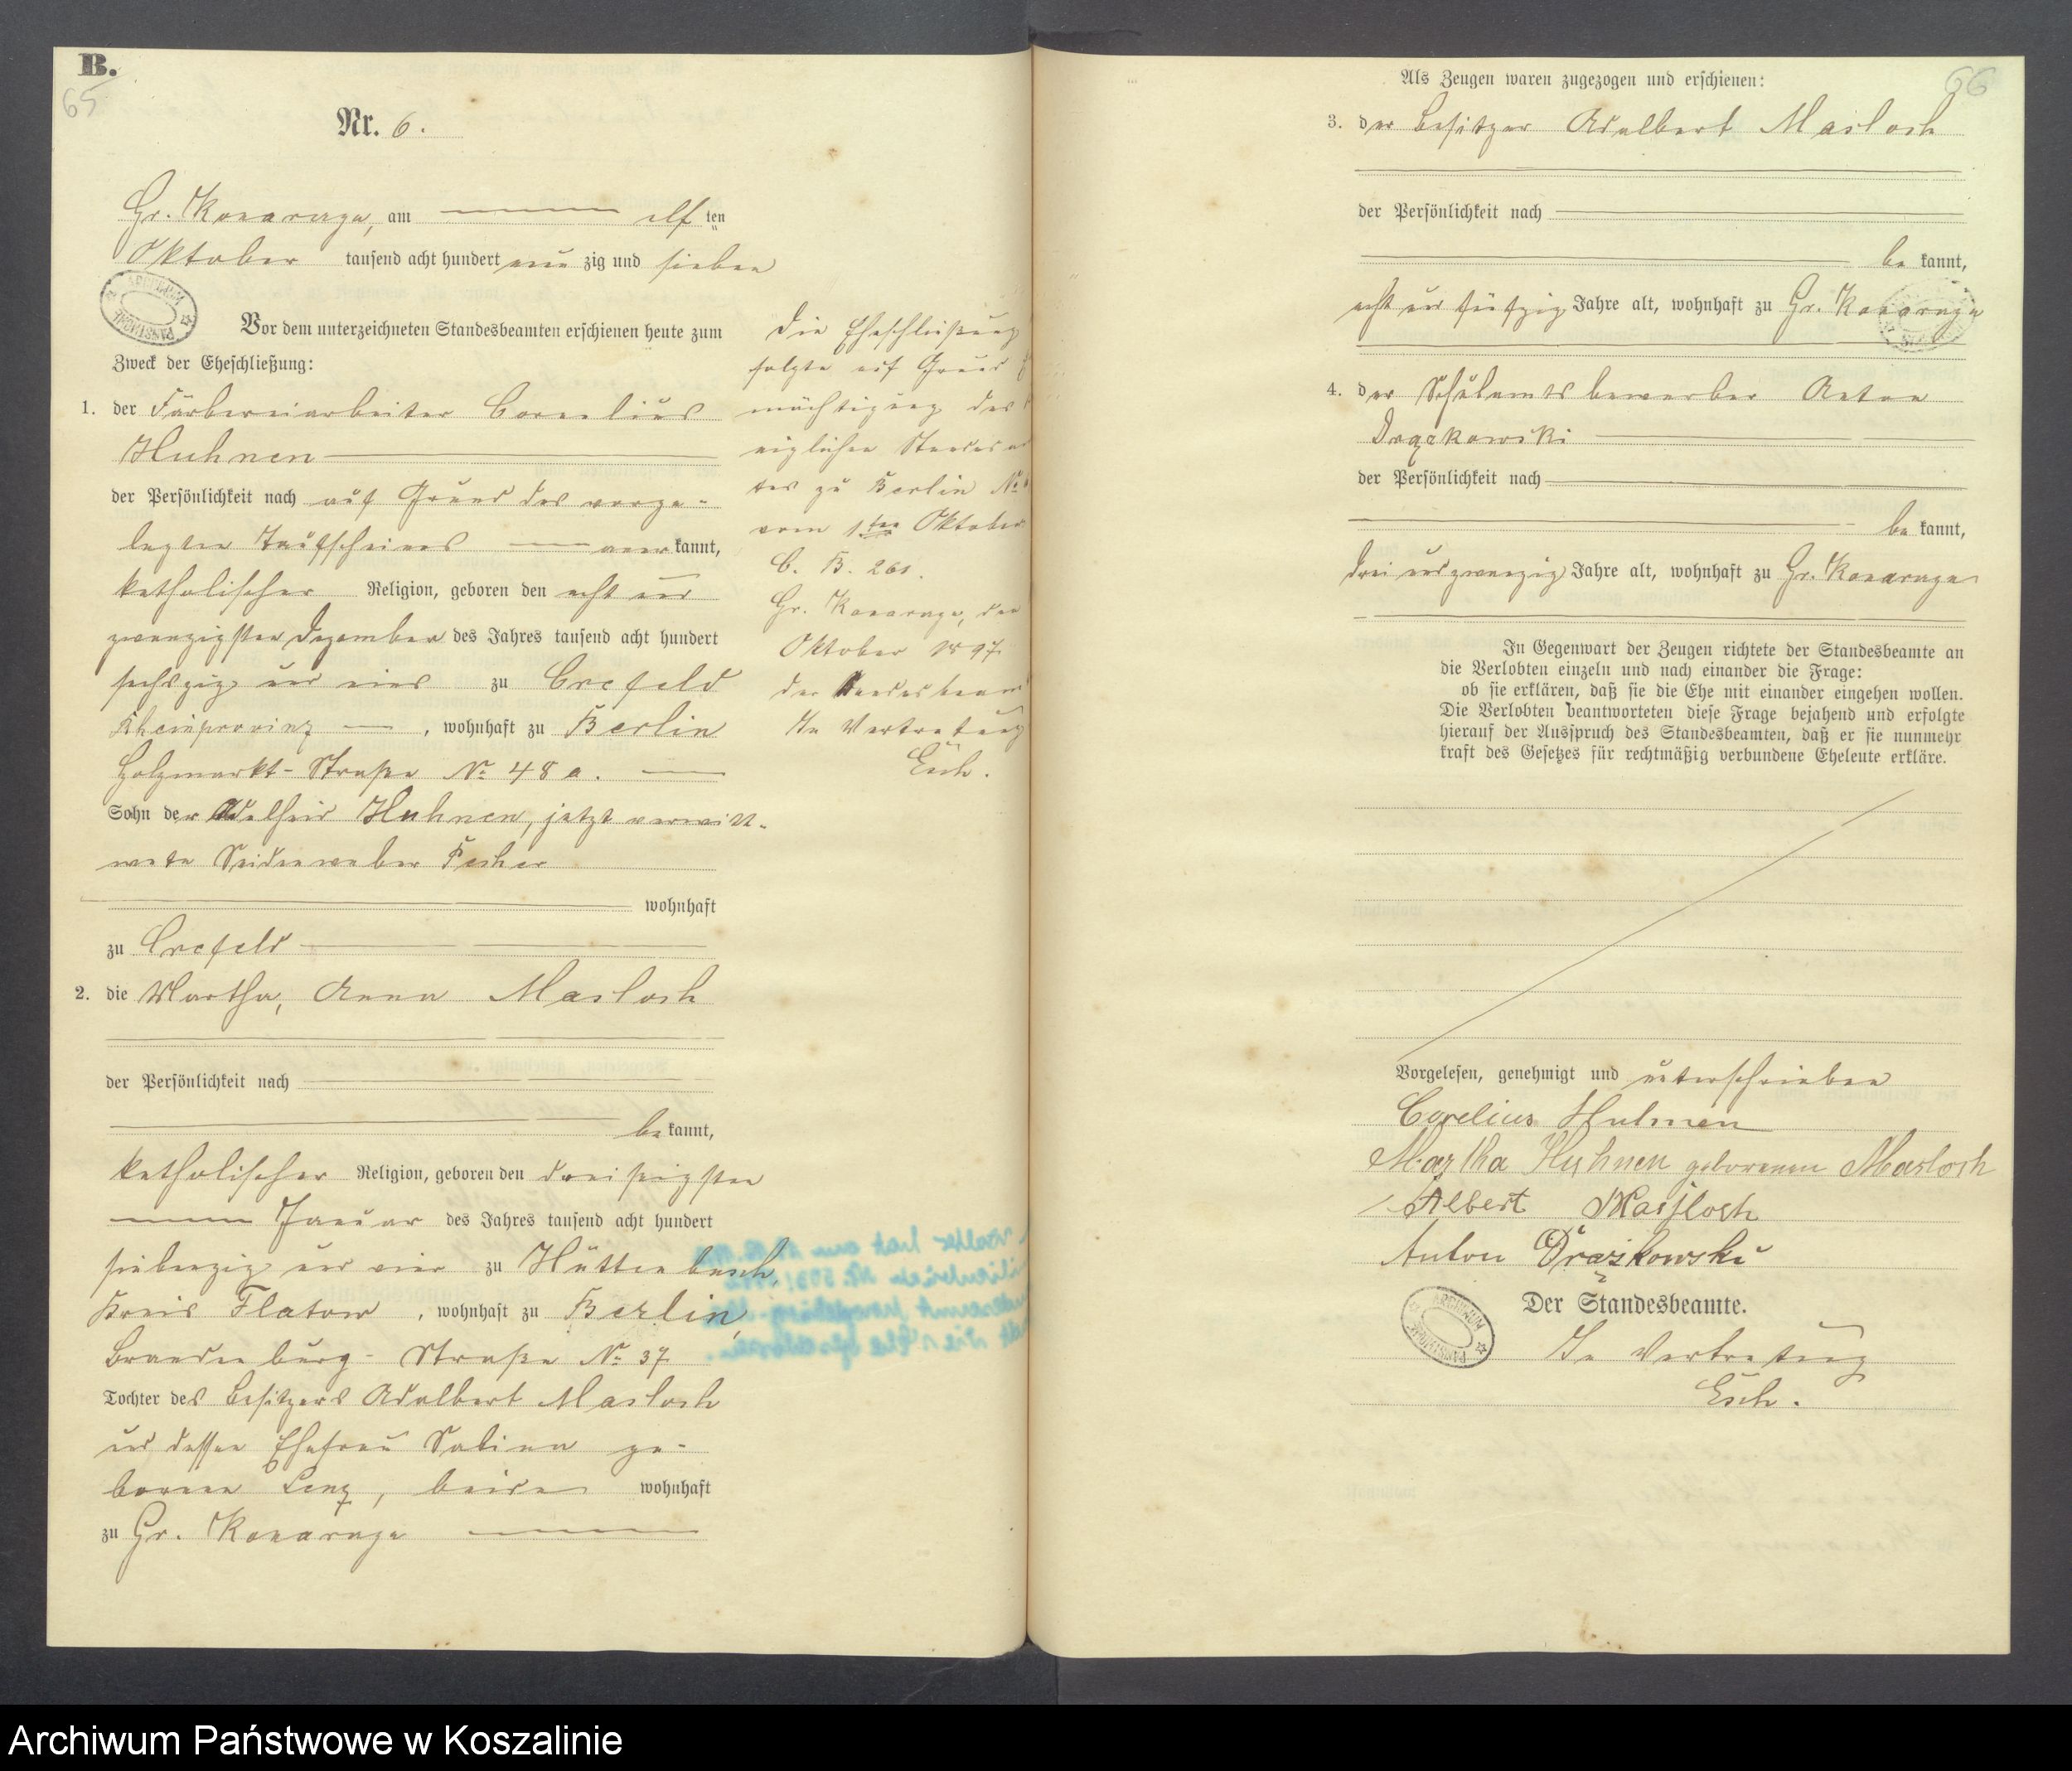 B.
65
Nr. 6.
Gr. Konarczyn, am elf ten
Oktober tausend acht hundert neun zig und sieben
Vor dem unterzeichneten Standesbeamten erschienen heute zum
Zweck der Eheschließung:
1. der Färbereiarbeiter Cornelius
Huhnen
der Persönlichkeit nach auf Grund des vorge-
legten Taufscheines aner kannt,
katholischer Religion, geboren den acht und
zwanzigsten Dezember des Jahres tausend acht hundert
sechszig und eins zu Crefeld
Rheinprovinz, wohnhaft zu Berlin
Holzmarkt-Straße № 48 a.
Sohn der Adelheid Huhnen, jetzt verwitt-
wete Seidenweber
wohnhaft
zu Crefeld
2. die Martha, Anna Masloch
der Persönlichkeit nach
be kannt,
katholischer Religion, geboren den dreißigsten
Januar des Jahres tausend acht hundert
siebenzig und vier zu Hüttenbusch,
Kreis Flatow, wohnhaft zu Berlin,
Brandenburg-Straße № 37
Tochter des Besitzers Adalbert Masloch
und dessen Ehefrau Sabina ge-
borene Lenz, beide wohnhaft
zu Gr. Konarczyn
Die Eheschließung
folgte auf Grund
mächtigung des
niglichen Standesam
tes zu Berlin №
vom 1ten Oktober
C. B. 261.
Gr. Konarczyn, den
Oktober 1897.
Der Standesbeam
In Vertretung
Esch.
66
Als Zeugen waren zugezogen und erschienen:
3. der Besitzer Adalbert Masloch
der Persönlichkeit nach
be kannt,
acht und fünfzig Jahre alt, wohnhaft zu Gr. Konarczyn
4. der Schulamtsbewerber Anton
der Persönlichkeit nach
be kannt,
drei und zwanzig Jahre alt, wohnhaft zu Gr. Konarczyn
In Gegenwart der Zeugen richtete der Standesbeamte an
die Verlobten einzeln und nach einander die Frage:
ob sie erklären, daß sie die Ehe mit einander eingehen wollen.
Die Verlobten beantworteten diese Frage bejahend und erfolgte
hierauf der Ausspruch des Standesbeamten, daß er sie nunmehr
kraft des Gesetzes für rechtmäßig verbundene Eheleute erkläre.
Vorgelesen, genehmigt und unterschrieben
Corelius Huhnen
Martha Huhnen geborenen Masloch
Albert Masslosh
Anton Drażkowski
Der Standesbeamte.
In Vertretung
Esch.
Archiwum Państwowe w Koszalinie